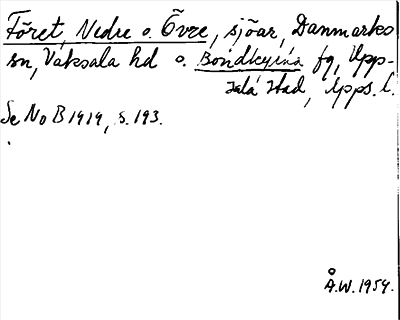 Fõret, Nedre o. Õvre, sjõar, Danmarks
sn, Vaksala hd o. Bondkyrka fg, Upp-
sala stad, Upps. l.
Se NoB 1919, s. 193.
Å.W. 1954.